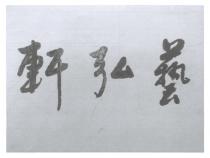 藝弘軒